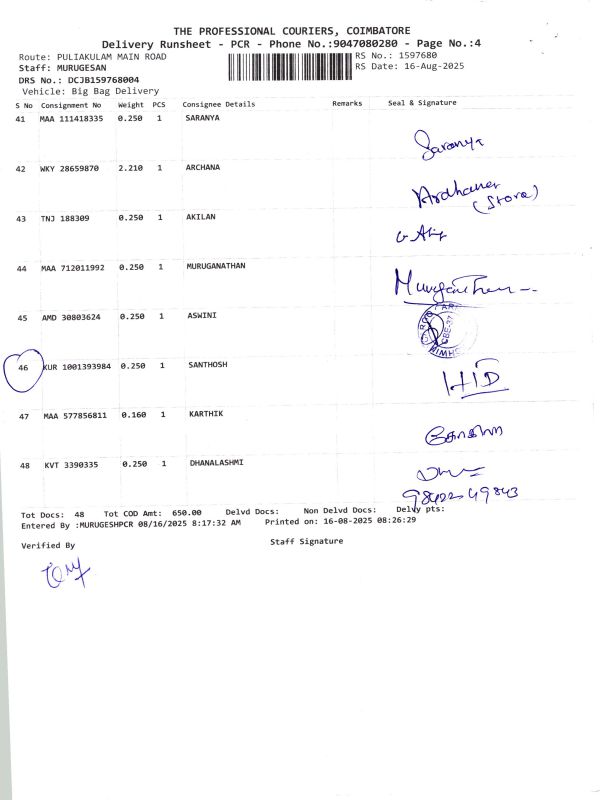 THE PROFESSIONAL COURIERS, COIMBATORE
Delivery Runsheet - PCR - Phone No.:9047080280 - Page No.:4
Route: PULIAKULAM MAIN ROAD
RS No.: 1597680
Staff: MURUGESAN
RS Date: 16-Aug-2025
DRS No.: DCJB159768004
Vehicle: Big Bag Delivery
S No Consignment No Weight PCS Consignee Details Remarks Seal & Signature
41 MAA 111418335 0.250 1 SARANYA
Saranya
42 WKY 28659870 2.210 1 ARCHANA
(Store)
43 TNJ 188309 0.250 1 AKILAN
44 MAA 712011992 0.250 1 MURUGANATHAN
45 AMD 30803624 0.250 1 ASWINI
46 KUR 1001393984 0.250 1 SANTHOSH
47 MAA 577856811 0.160 1 KARTHIK
48 KVT 3390335 0.250 1 DHANALASHMI
9842249843
Tot Docs: 48 Tot COD Amt: 650.00 Delvd Docs: Non Delvd Docs: Delvy pts:
Entered By :MURUGESHPCR 08/16/2025 8:17:32 AM Printed on: 16-08-2025 08:26:29
Verified By Staff Signature